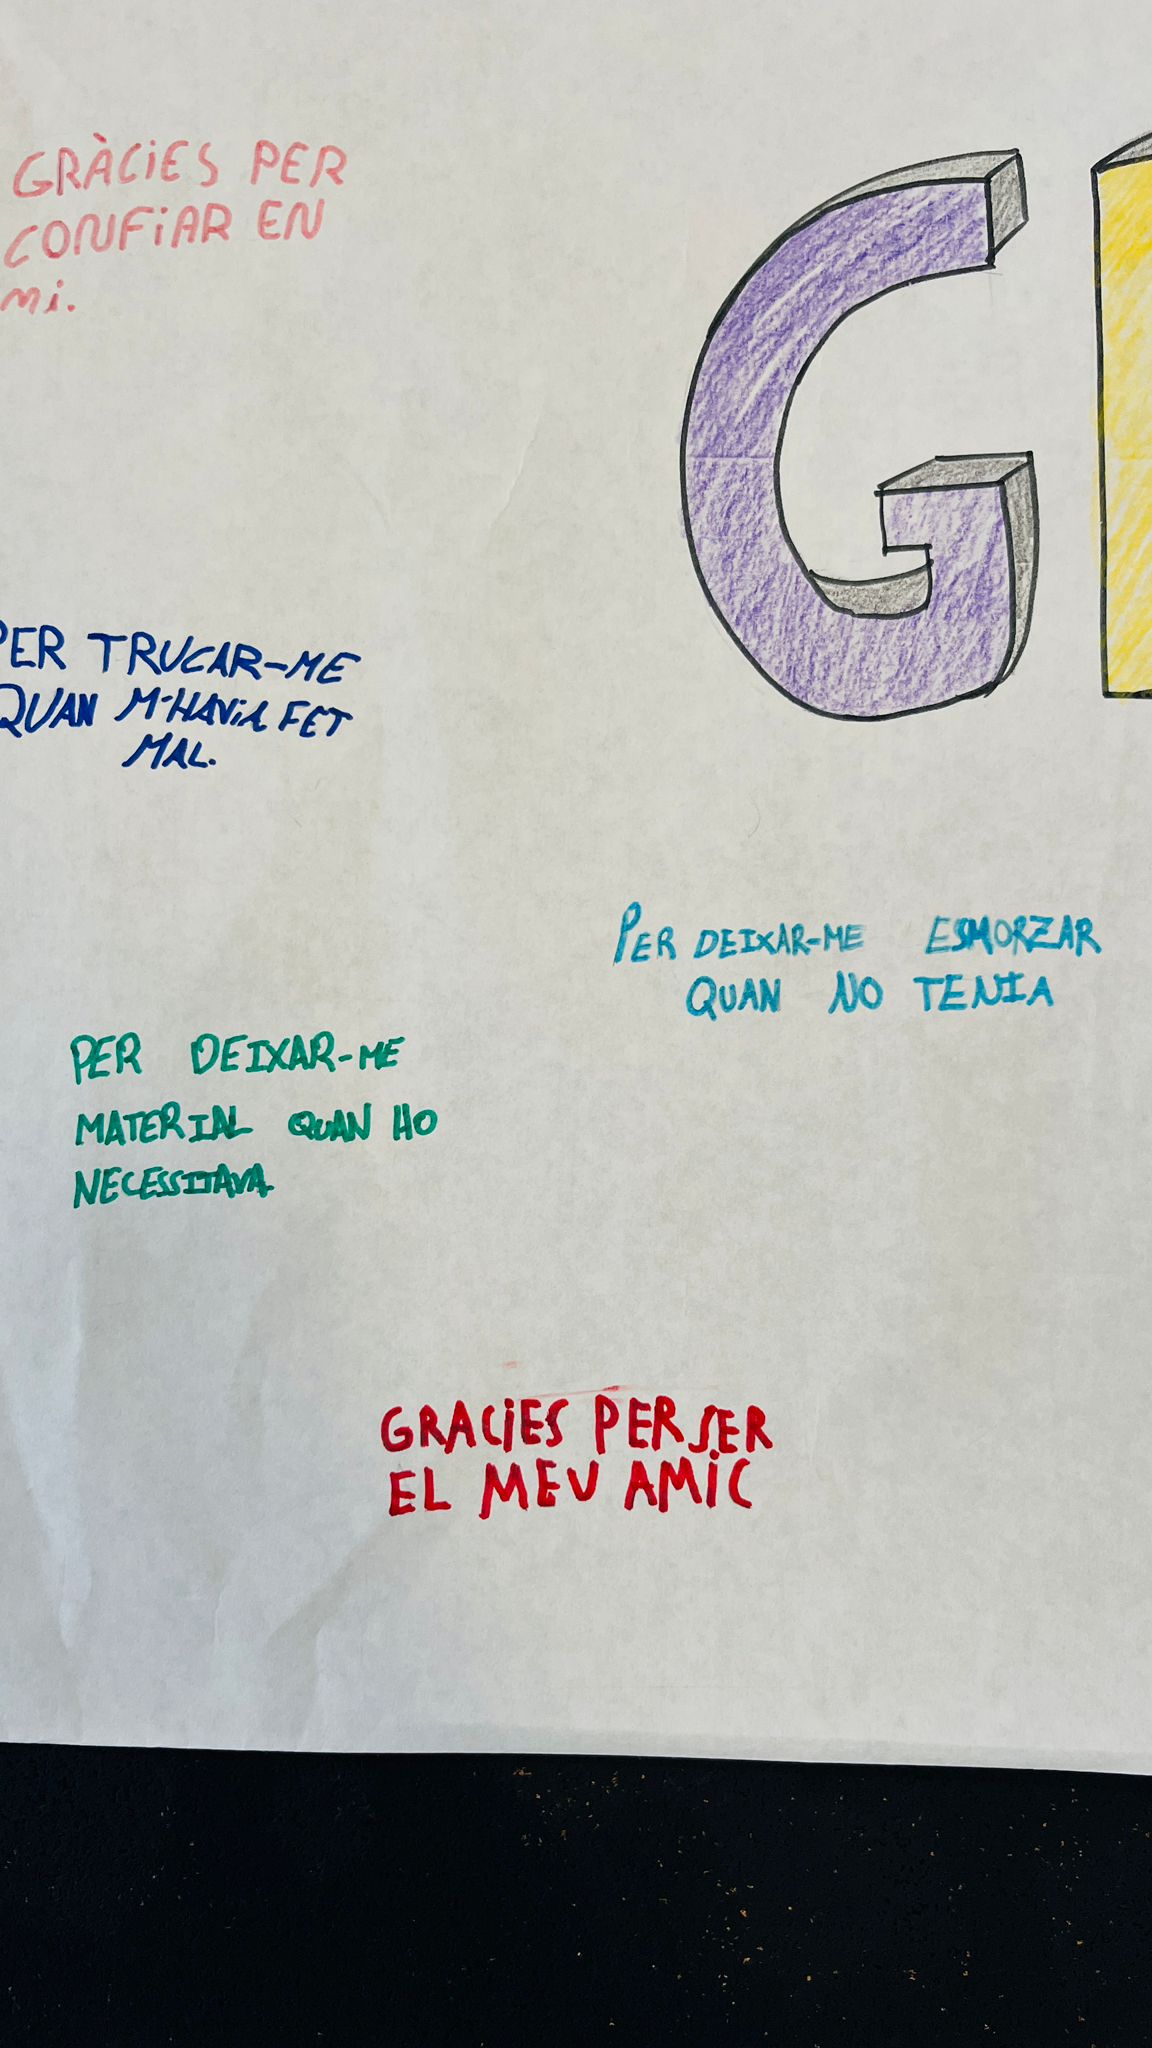 GRÀCIES PER
CONFIAR EN
mi.
G
PER TRUCAR-ME
QUAN M'HAVIA FET
MAL.
PER DEIXAR-ME ESMORZAR
QUAN NO TENIA
PER DEIXAR-ME
MATERIAL QUAN HO
NECESSITAVA
GRACIES PER SER
EL MEU AMIC